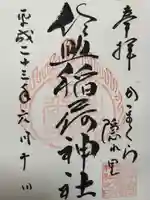 奉拝
かまくら
隠れ里
佐助稲荷神社
平成二十三年六月十一日